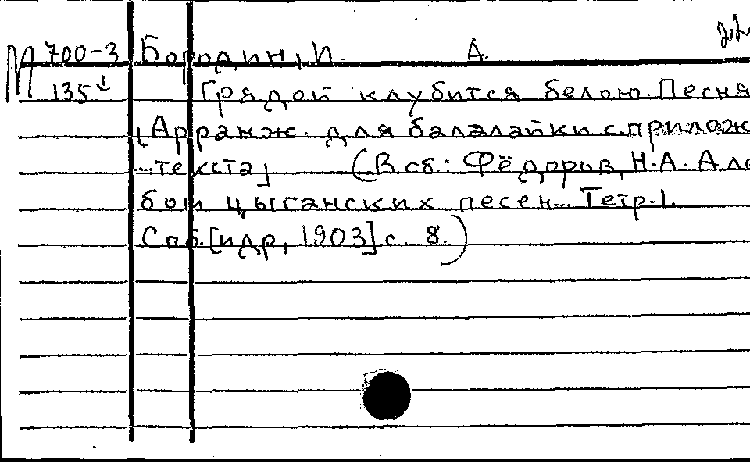 М 700-3 Бородин, И. А.
135
Грядой клубится белою. Песня
[Арранж. для балалайки с прилож.
... текста] (В сб.: Фёдоров, Н.А. Аль
бом цыганских песен... Тетр. 1.
Спб. [ц др, 1903] с. 8.)